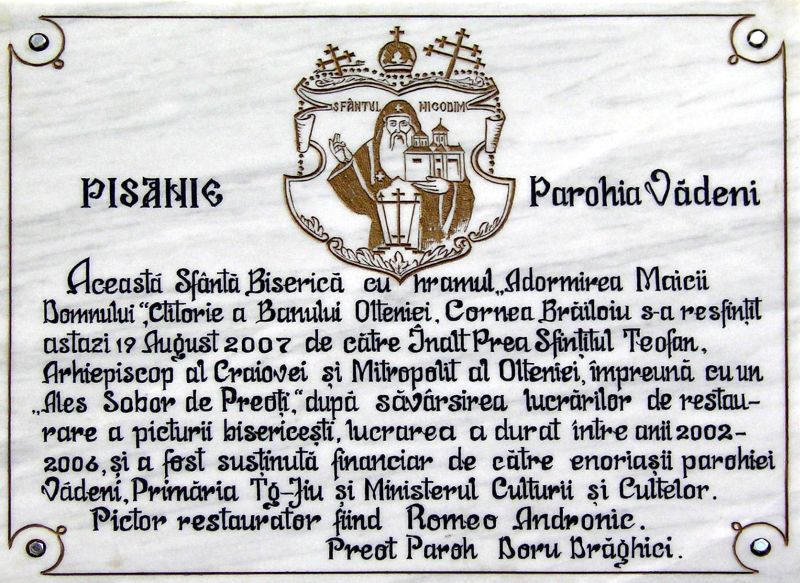 SFÂNTUL NICODIM
PISANIE
Parohia Vădeni
Această Sfântă Biserică cu hramul „Adormirea Maicii
Domnului“, Ctitorie a Banului Olteniei, Cornea Brăiloiu s-a resfințit
astazi 19 August 2007 de către Înalt Prea Sfințitul Teofan,
Arhiepiscop al Craiovei și Mitropolit al Olteniei, împreună cu un
„Ales Sobor de Preoți,“ după săvârsirea lucrărilor de restau-
rare a picturii bisericești, lucrarea a durat între anii 2002-
2006, și a fost susținută financiar de către enoriașii parohiei
Vădeni, Primăria Tg-Jiu și Ministerul Culturii și Cultelor.
Pictor restaurator fiind Romeo Andronic.
Preot Paroh Doru Drăghici.